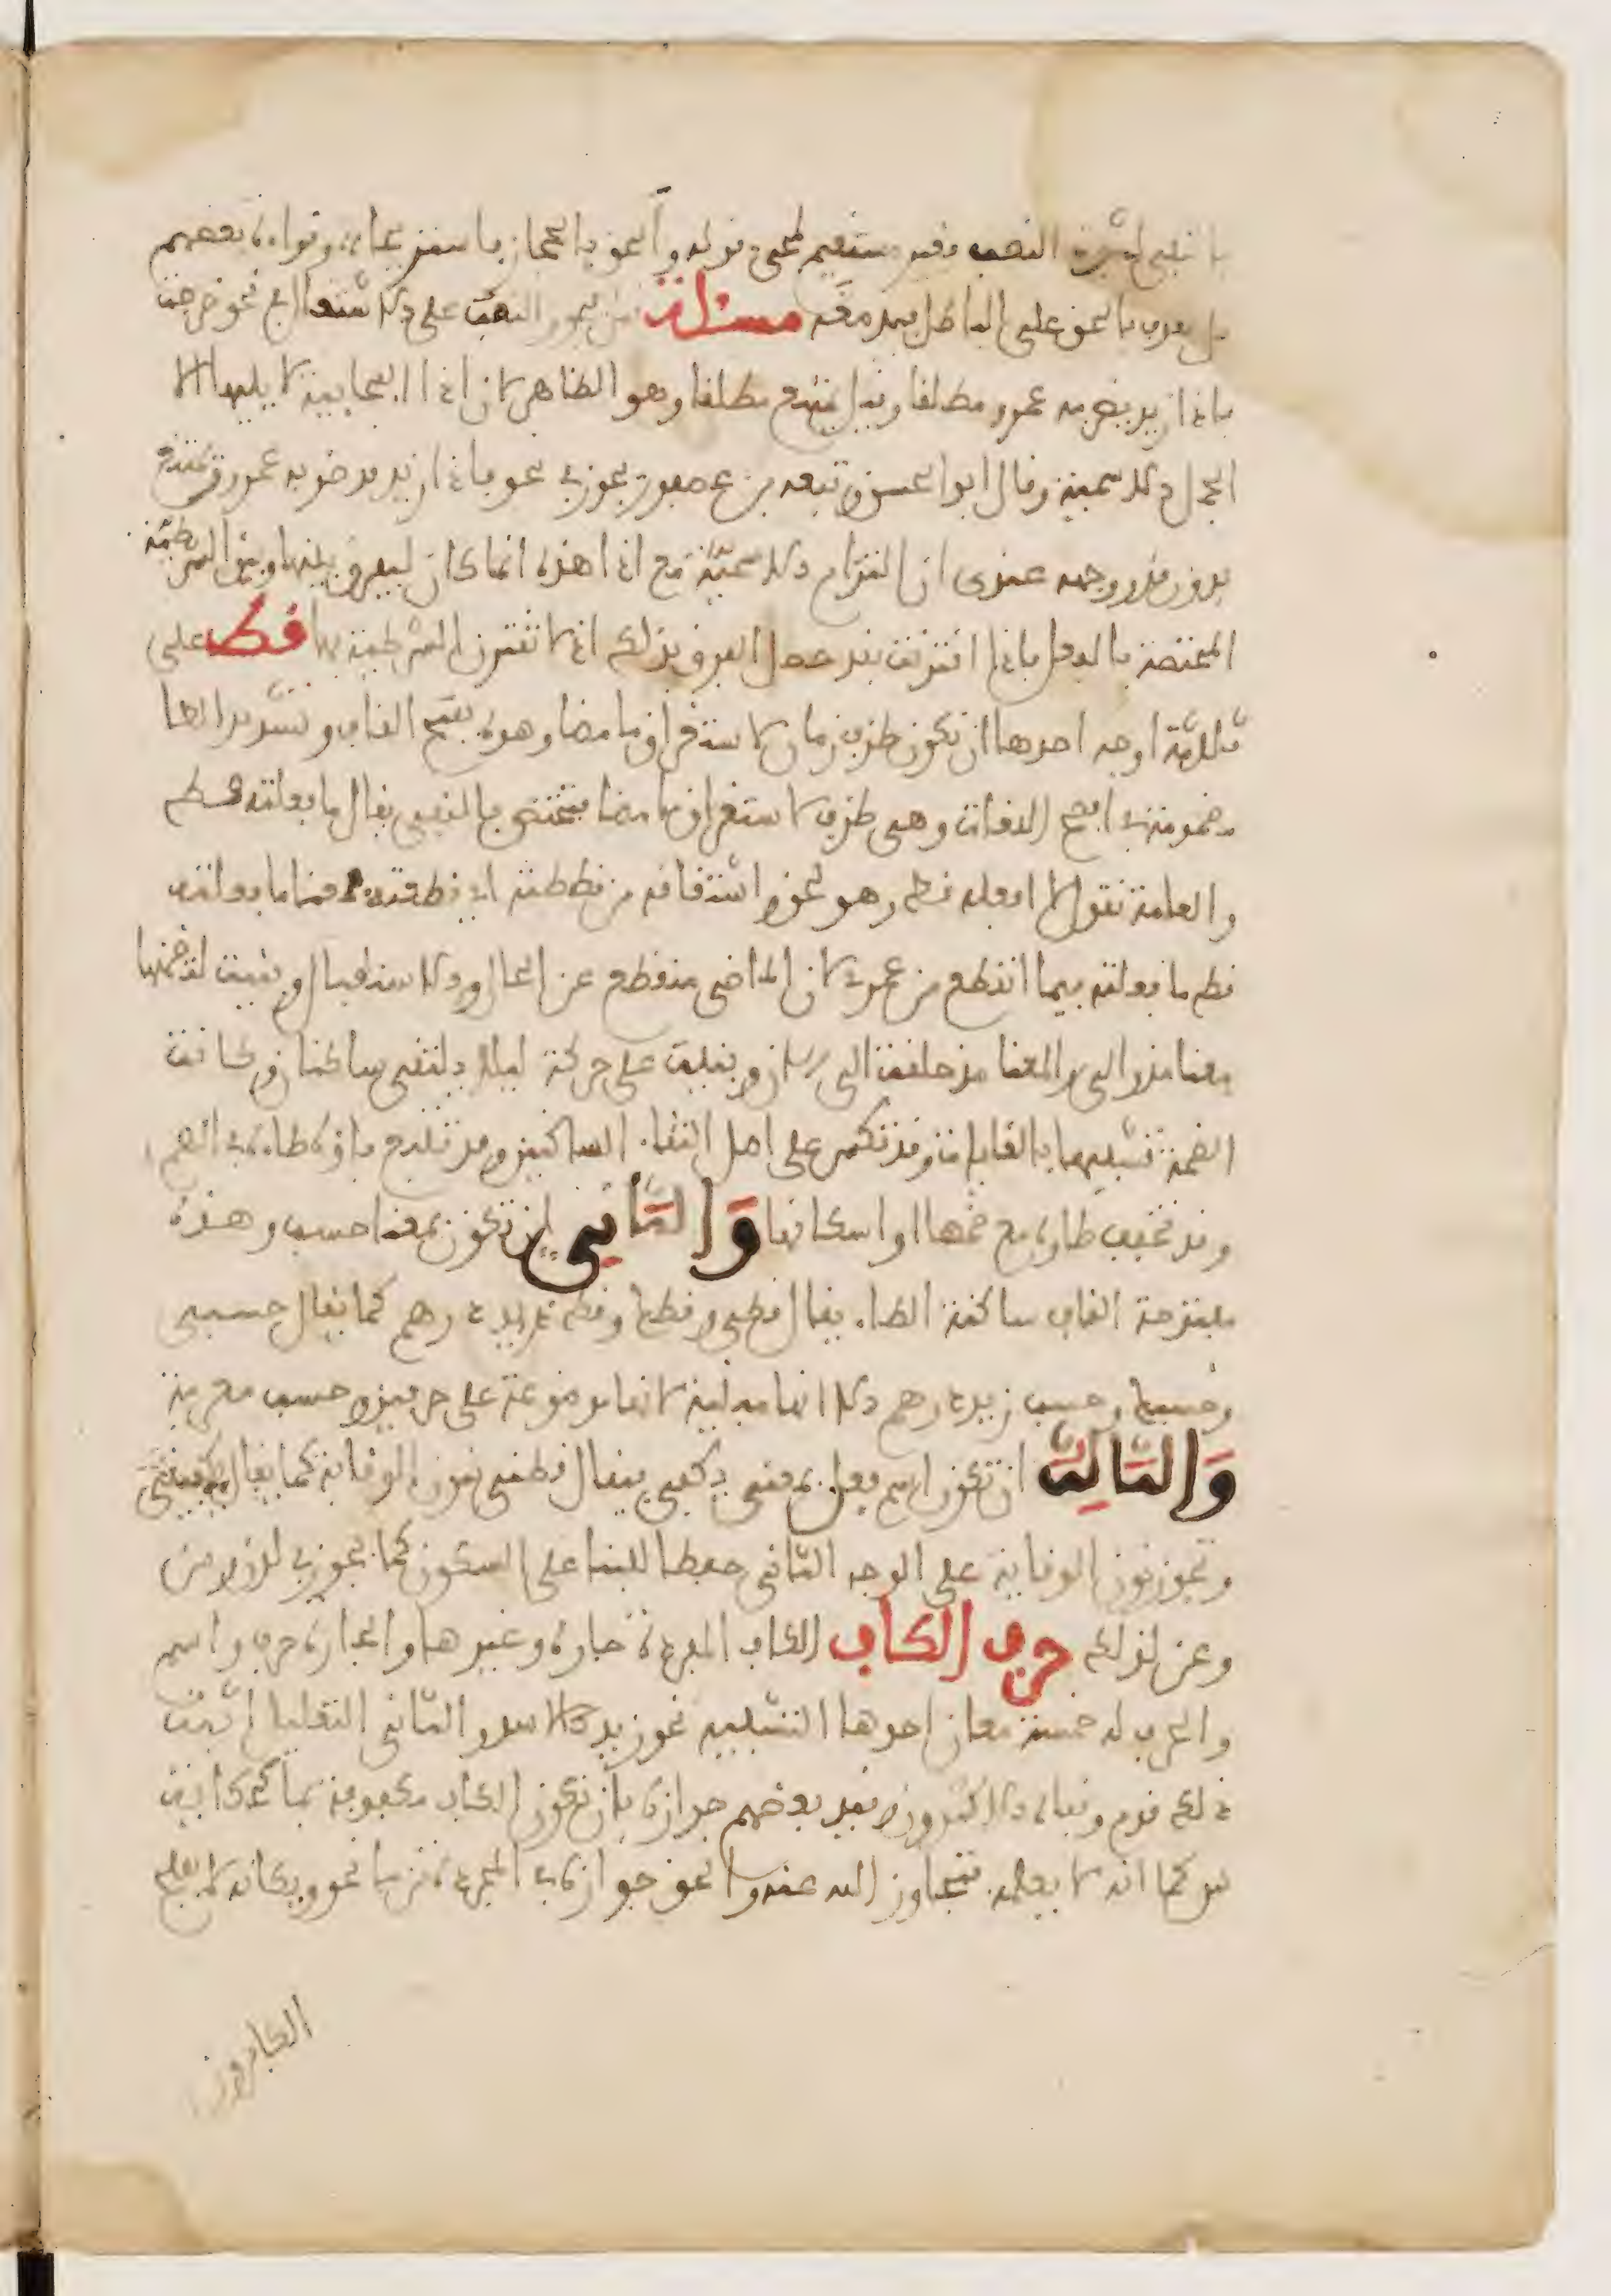 النصب مستقيم لمجيء قوله والحق بالحجاز فاستريحا وقراءة بعضهم
بل نقذف بالحق على الباطل فيدمغه مسئلة قيل يجوز النصب على الاشتغال في نحو خرجت
فاذا زيد يضربه عمرو مطلقا وقيل يمتنع مطلقا وهو الظاهر لان اذا الفجائية لا يليها الا
الجمل الاسمية وقال ابوا الحسن وتبعه بن عصفور يجوز في نحو فاذا زيد قد ضربه عمرو ويمتنع
بدون قد ووجهه عندي ان التزام الاسمية مع اذا هذه انما كان ليفرق بينها وبين الشرطية
المختصة بالفعل فاذا اقترنت بقد حصل الفرق بذلك اذ لا تقترن الشرطية بها قط على
ثلاثة اوجه احدها ان تكون ظرف زمان لاستغراق ما مضا وهذه بفتح القاف وتشديد الطا
مضمومة في افصح اللغات وهي ظرف لاستغراق ما مضا فتختص بالنفي يقال ما فعلته قط
والعامة تقول لا افعله قط وهو لحن واشتقاقه من قططته اي قطعته فمعنا ما فعلته
قط ما فعلته فيما انقطع من عمري لان الماضي منقطع عن الحال والاستقبال وبنيت لتضمنها
معنا مذ والى والمعنا مذ خلقت الى الان وبنيت على حركة ليلا يلتقي ساكنان وكانت
الضمة تشبيها بالغايات وقد تكسر على اصل التقاء الساكنين وقد تتبع قافه طاءه في الضم
وقد تخفف طاؤه مع ضمها او اسكانها والثاني ان تكون بمعنا حسب وهذه
مفتوحة القاف ساكنة الطاء يقال قطي وقطك وقط زيد درهم كما يقال حسبي
وحسبك وحسب زيد درهم الا انها مبنية لانها موضوعة على حرفين وحسب معربة
والثالث ان تكون اسم فعل بمعنى يكفي فيقال قطني بنون الوقاية كما يقال يكفيني
وتجوز نون الوقاية على الوجه الثاني حفظا للبنا على السكون كما يجوز في لدن ومن
وعن لذلك حرف الكاف الكاف المفردة جارة وغيرها والجارة حرف واسم
والحرف له خمسة معان احدها التشبيه نحو زيد كالاسد والثاني التعليل اثبت
ذلك قوم ونفاه الاكثرون وقيد بعضهم جوازه بان تكون الكاف مكفوفة بما كحكاية
س كما انه لا يعلم فتجاوز الله عنه والحق جوازه في المجردة من ما نحو ويكانه لا يفلح
الكافرون